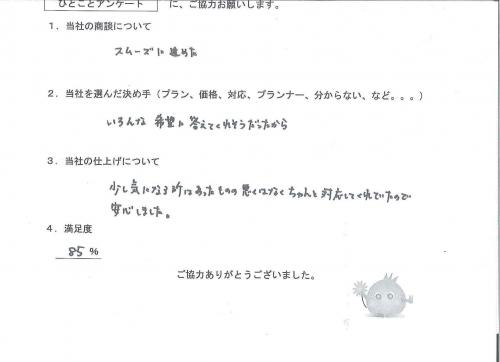 ひとことアンケート に、ご協力お願いします。
１．当社の商談について
スムーズに進めた
２．当社を選んだ決め手（プラン、価格、対応、プランナー、分からない、など。。。）
いろんな 希望に 答えてくれそうだったから
３．当社の仕上げについて
少し気になる所はあったものの 悪くはなく ちゃんと対応してくれていたので
安心しました。
４．満足度
85 ％
ご協力ありがとうございました。